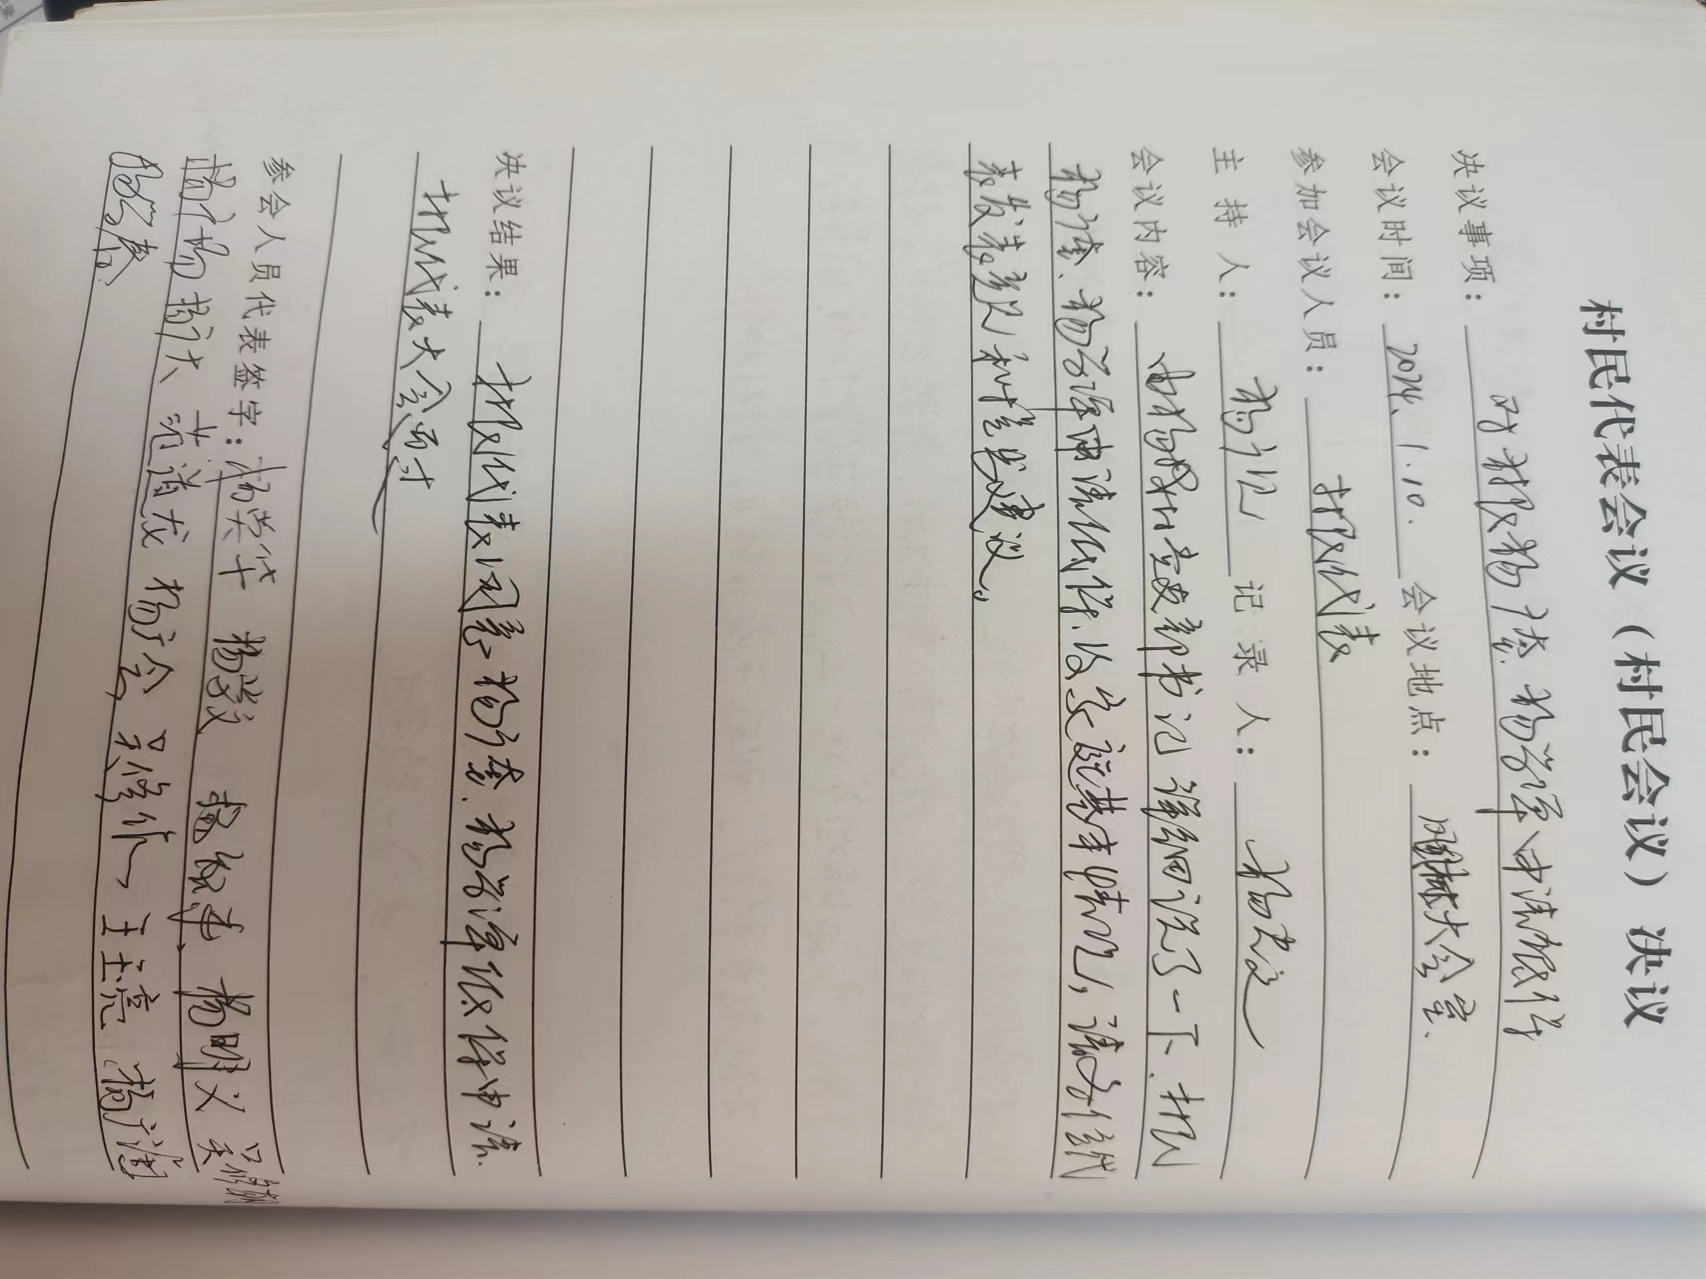 村民代表会议（村民会议）决议
决议事项： 对村民杨广奎、杨学谭申请低保
会议时间： 2024.1.10. 会议地点： 大会室.
参加会议人员： 村民代表
主持人： 杨广见 记录人： 杨忠文
会议内容： 由杨村党支部书记详细说了一下、村民
杨广奎、杨学谭申请低保、及家庭基本情况，请各位代
表发表意见和提出建议。
决议结果： 村民代表同意杨广奎、杨学谭低保申请.
村民代表大会通过
参会人员代表签字：杨荣华 杨学文 杨明义 吴修朝
杨广场 杨广大 范道龙 杨广会 吴修作 王玉亮 杨广
杨学春